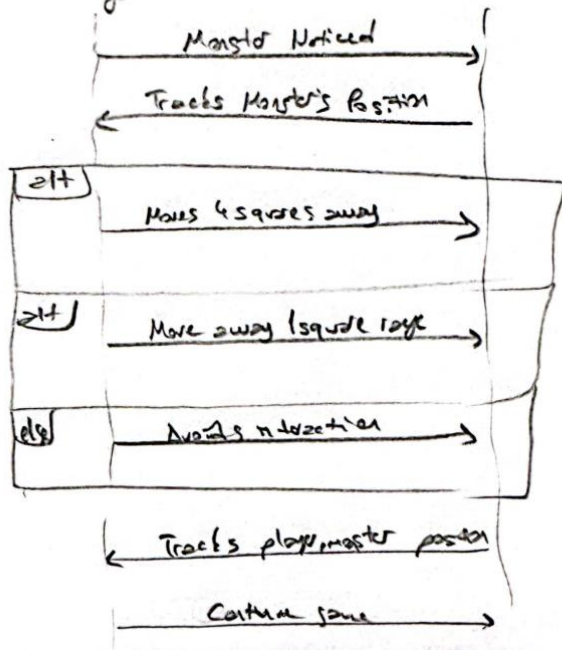 Monster Noticed
Tracks Monster's Position
alt
Moves 4 squares away
alt
Move away 1 square range
else
Avoids interaction
Tracks player, monster position
Continue game